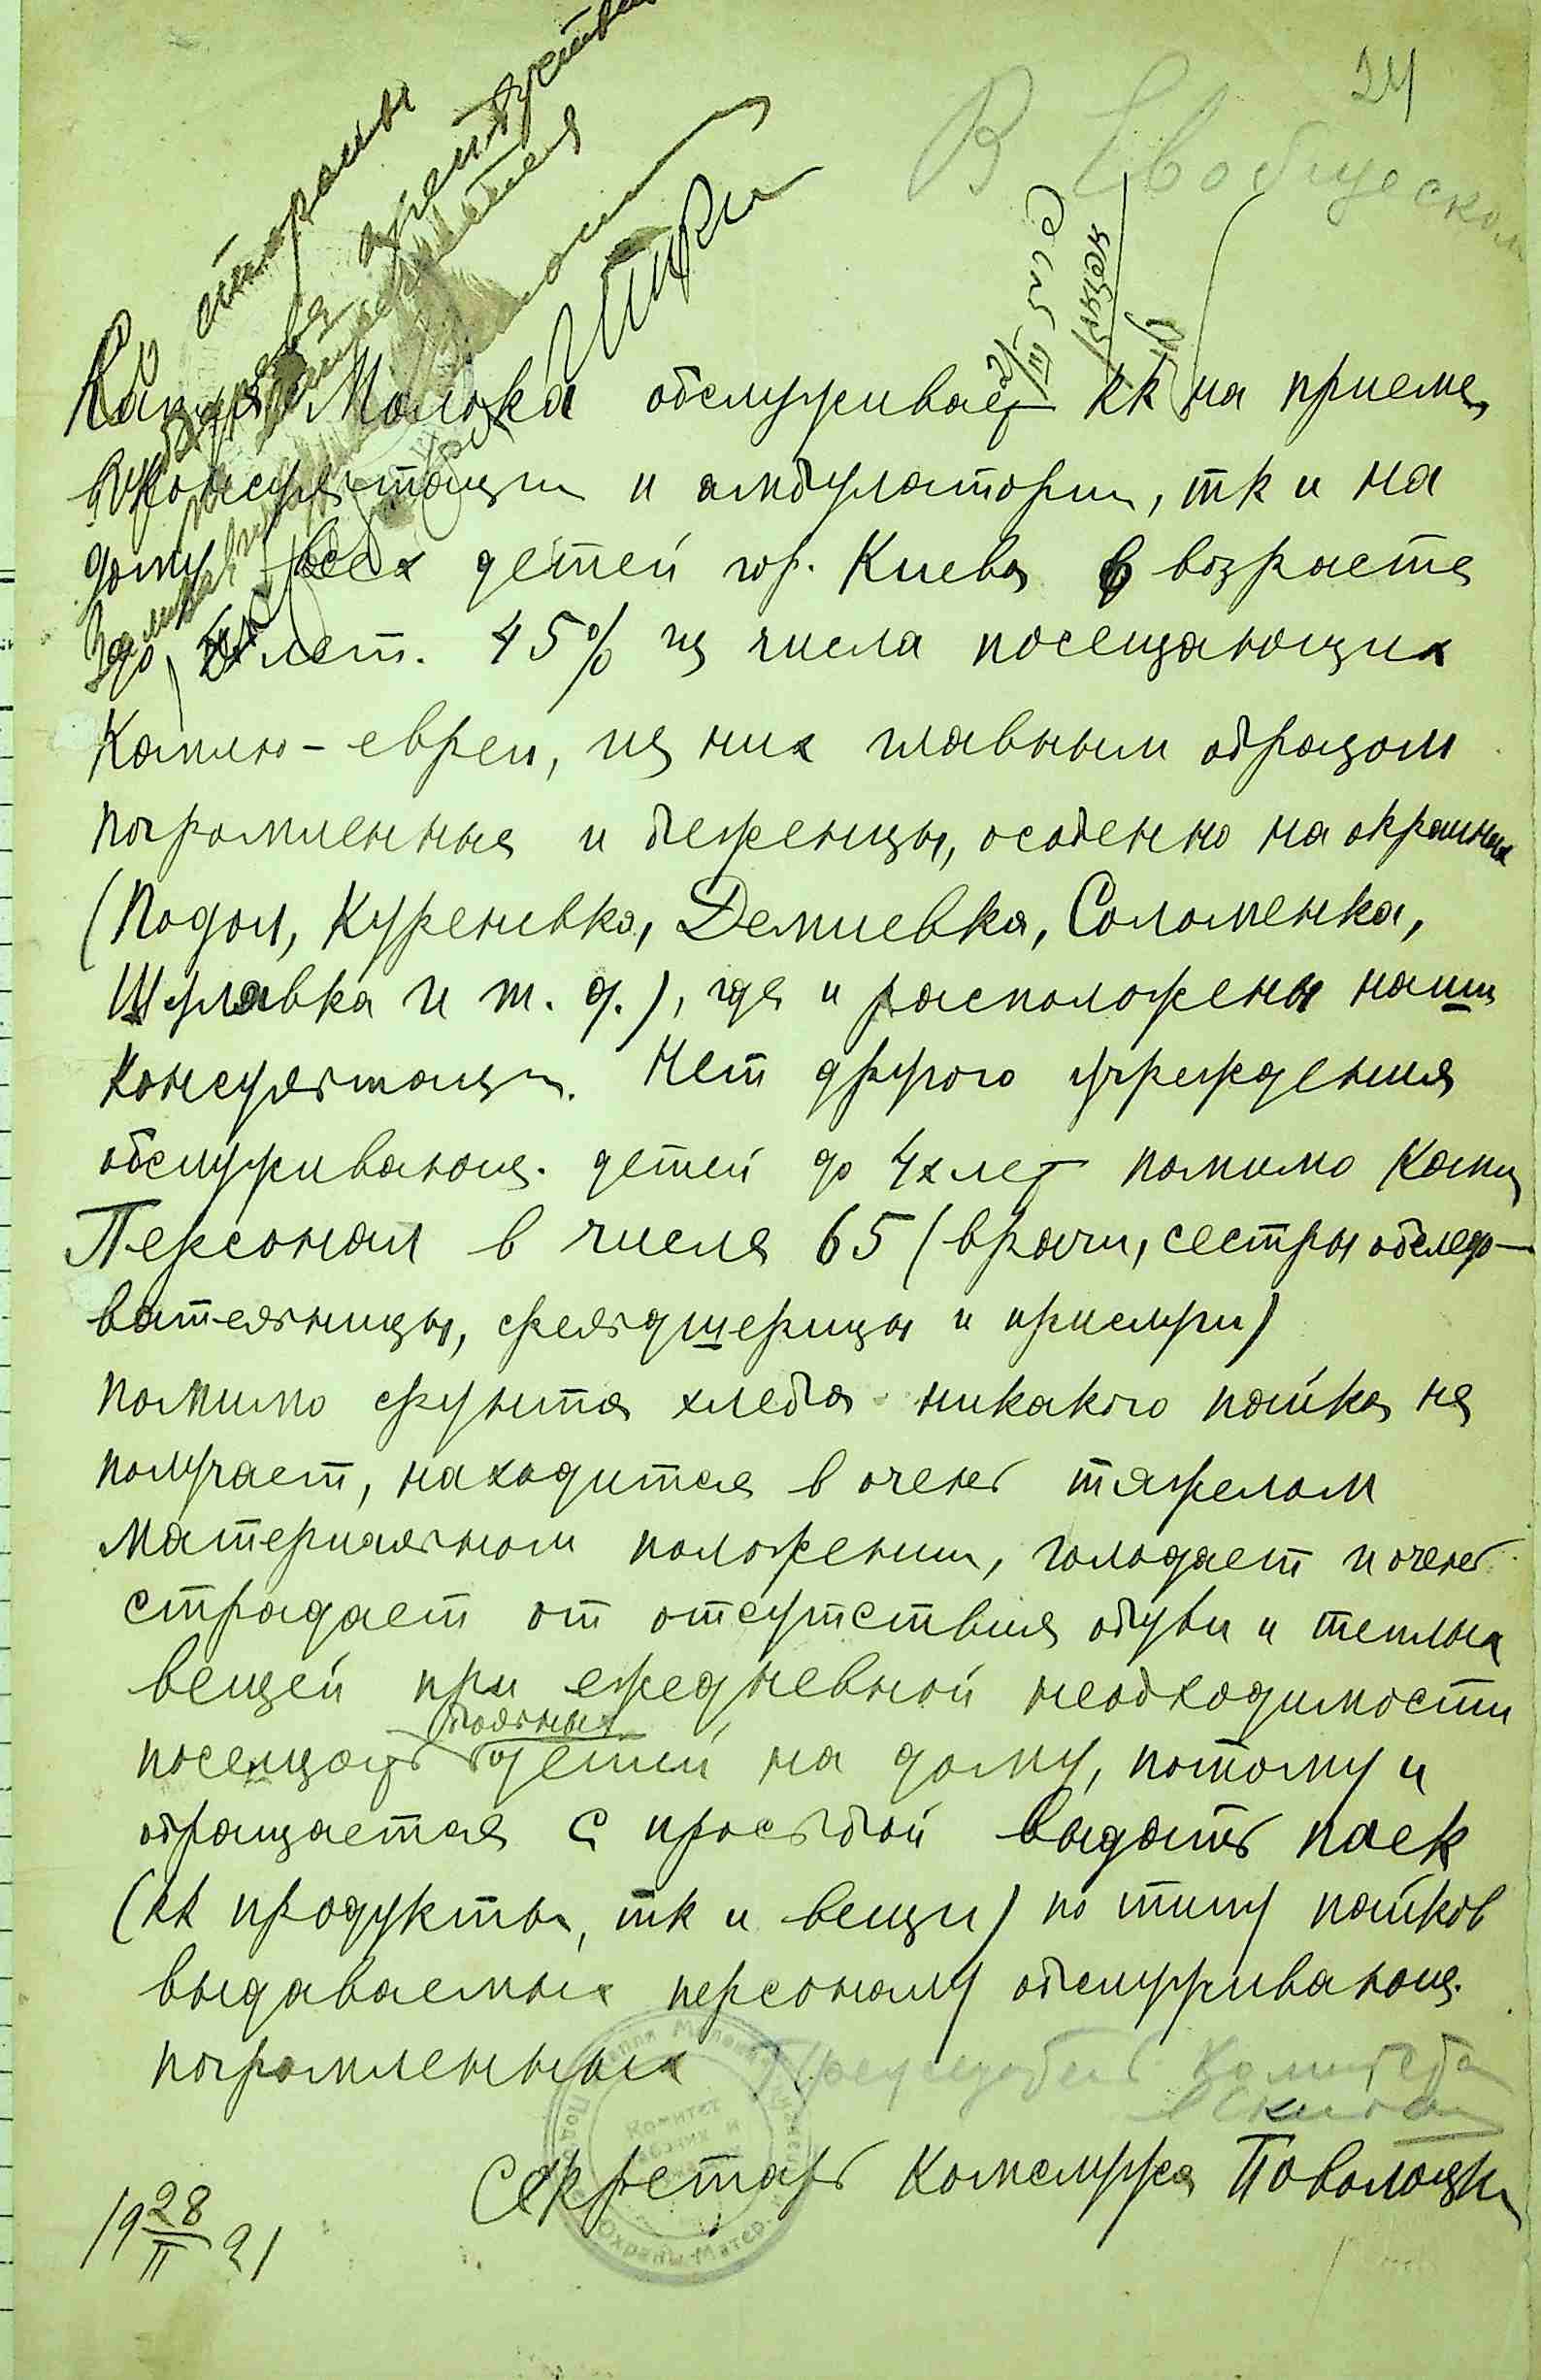 24
В Евобщеском
Капля Молока обслуживает кк на приеме
в консультации и амбулатории, тк и на
дому всех детей гор. Киева в возрасте
до лет. 45% из числа посещающих
Каплю - евреи, из них главным образом
погромленные и беженцы, особенно на окраинах
(Подол, Куреневка, Демиевка, Соломенка,
Шулявка и т. д.), где и расположены наши
консультации. Нет другого учреждения
обслуживающ. детей до 4х лет помимо Капли
Персонал в числе 65 (врачи, сестры обследо-
вательницы, фельдшерицы и прислуги)
помимо фунта хлеба никакого пайка не
получает, находится в очень тяжелом
материальном положении, голодает и очень
страдает от отсутствия обуви и теплых
вещей при ежедневной необходимости
больных
посещать детей на дому, потому и
обращается с просьбой выдать паек
(кк продукты, тк и вещи) по типу пайков
выдаваемых персоналу обслуживающ.
погромленных
Председатель Комитета
Секретарь Комслужа Поволоцки
19 28/II 21